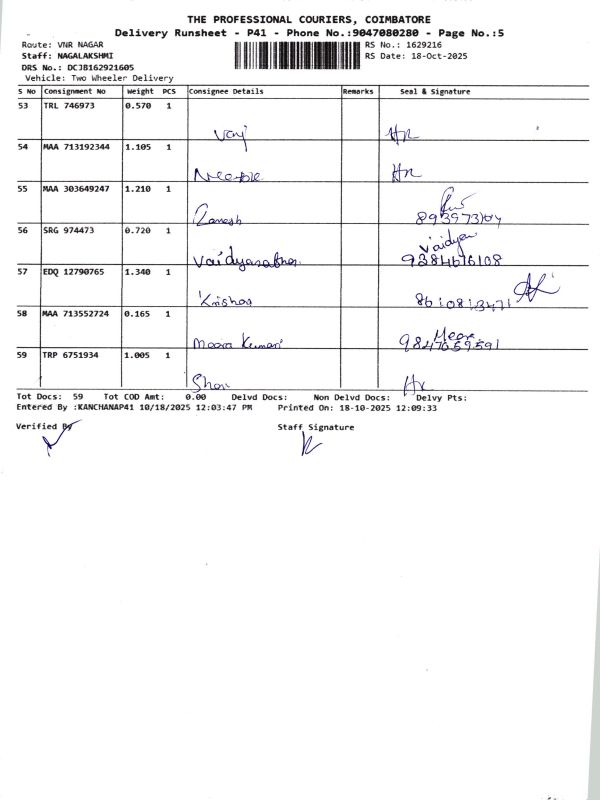 THE PROFESSIONAL COURIERS, COIMBATORE
Delivery Runsheet - P41 - Phone No.:9047080280 - Page No.:5
Route: VNR NAGAR
RS No.: 1629216
Staff: NAGALAKSHMI
RS Date: 18-Oct-2025
DRS No.: DCJ8162921605
Vehicle: Two Wheeler Delivery
S No Consignment No Weight PCS Consignee Details Remarks Seal & Signature
53 TRL 746973 0.570 1
Hr
54 MAA 713192344 1.105 1
Hr
55 MAA 303649247 1.210 1
Ramesh
56 SRG 974473 0.720 1
Vaidyan
57 EDQ 12790765 1.340 1
Krishna
58 MAA 713552724 0.165 1
Meera
Meera Kumari 9847059591
59 TRP 6751934 1.005 1
Hr
Tot Docs: 59 Tot COD Amt: 0.00 Delvd Docs: Non Delvd Docs: Delvy Pts:
Entered By :KANCHANAP41 10/18/2025 12:03:47 PM Printed On: 18-10-2025 12:09:33
Verified By Staff Signature